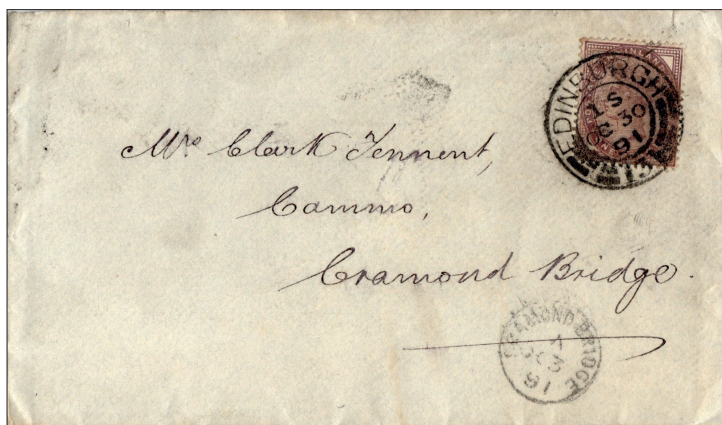 EDINBURGH
S
30
91
131
Mrs Clark Tennent,
Cammo,
Cramond Bridge.
CRAMOND BRIDGE
A
91